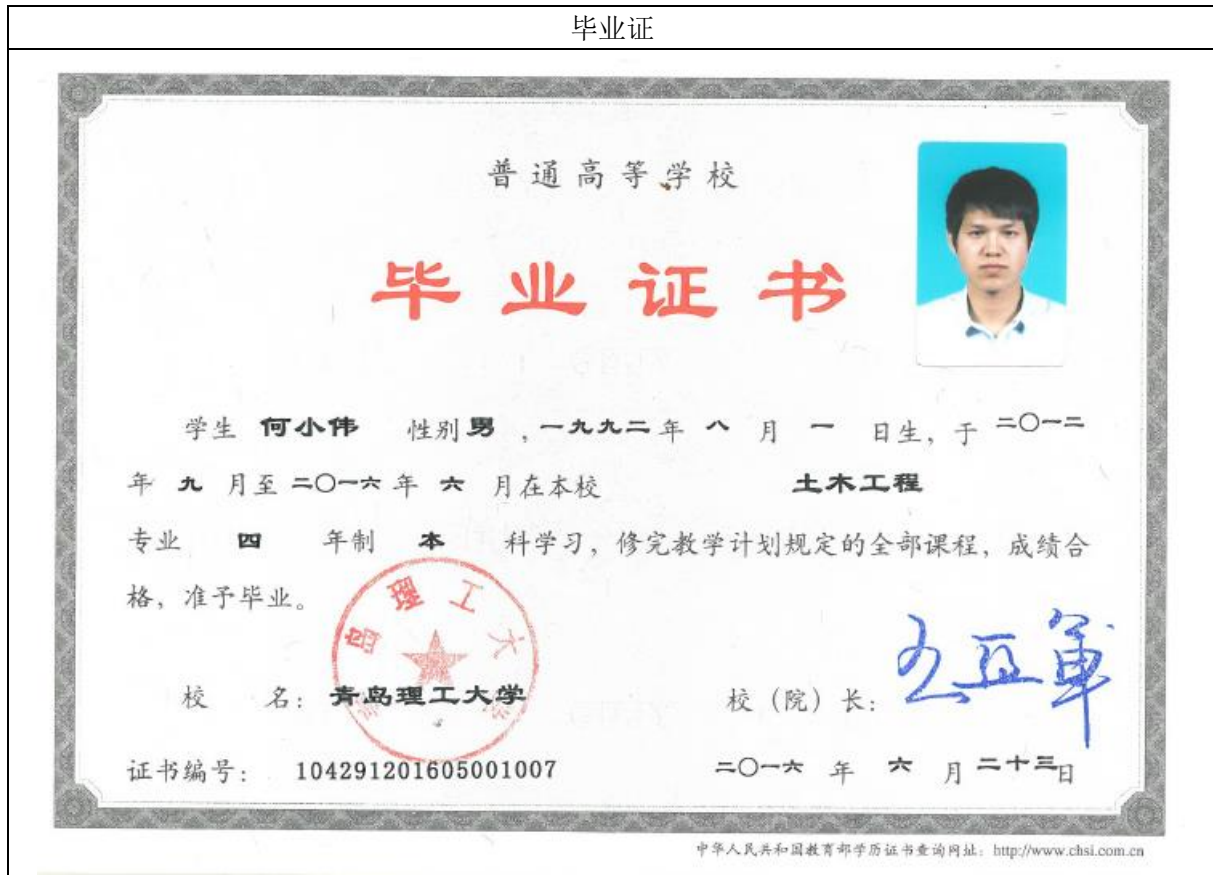 毕业证
普通高等学校
毕业证书
学生 何小伟 性别 男 ,一九九二 年 八 月 一 日生, 于 二〇一二
年 九 月至 二〇一六 年 六 月在本校 土木工程
专业 四 年制 本 科学习, 修完教学计划规定的全部课程, 成绩合
格, 准予毕业。
青岛理工大学
校 名: 青岛理工大学 校 (院) 长:
证书编号: 104291201605001007 二〇一六 年 六 月 二十三日
中华人民共和国教育部学历证书查询网址: http://www.chsi.com.cn